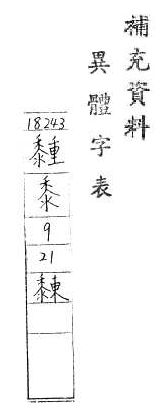 補充資料
異體字表
18243
𪐒
黍
9
21